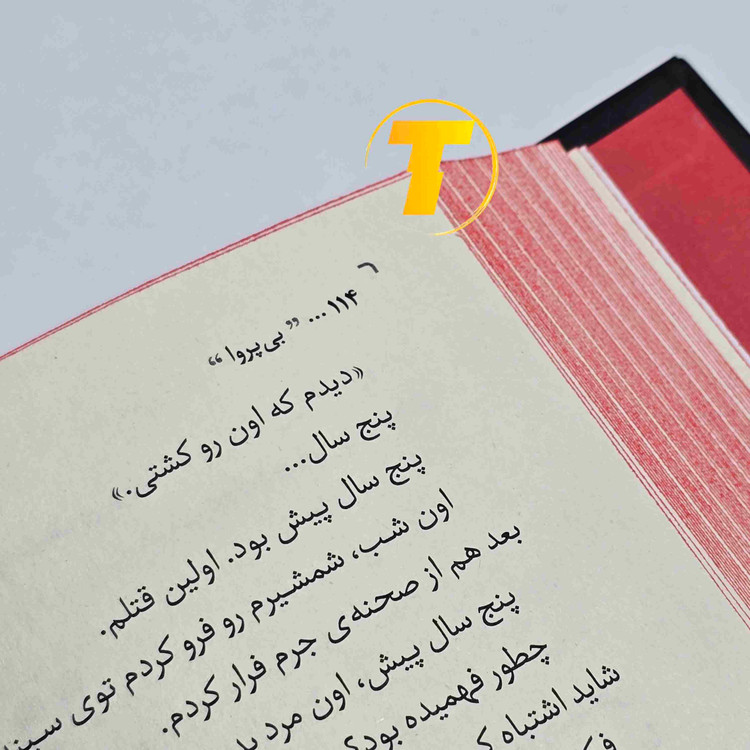 T
۱۱۴ ... ” بی‌پروا “
«دیدم که اون رو کشتی.»
پنج سال...
پنج سال پیش بود. اولین قتلم.
اون شب، شمشیرم رو فرو کردم توی
بعد هم از صحنه‌ی جرم فرار کردم.
پنج سال پیش، اون مرد
چطور فهمیده بود؟
شاید اشتباه